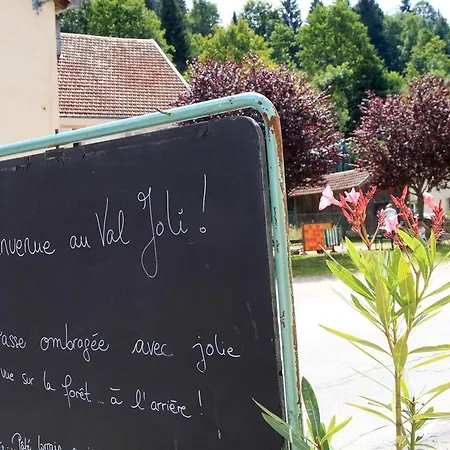 envenue au Val Joli !
rasse ombragée avec jolie
vue sur la forêt... à l'arrière !